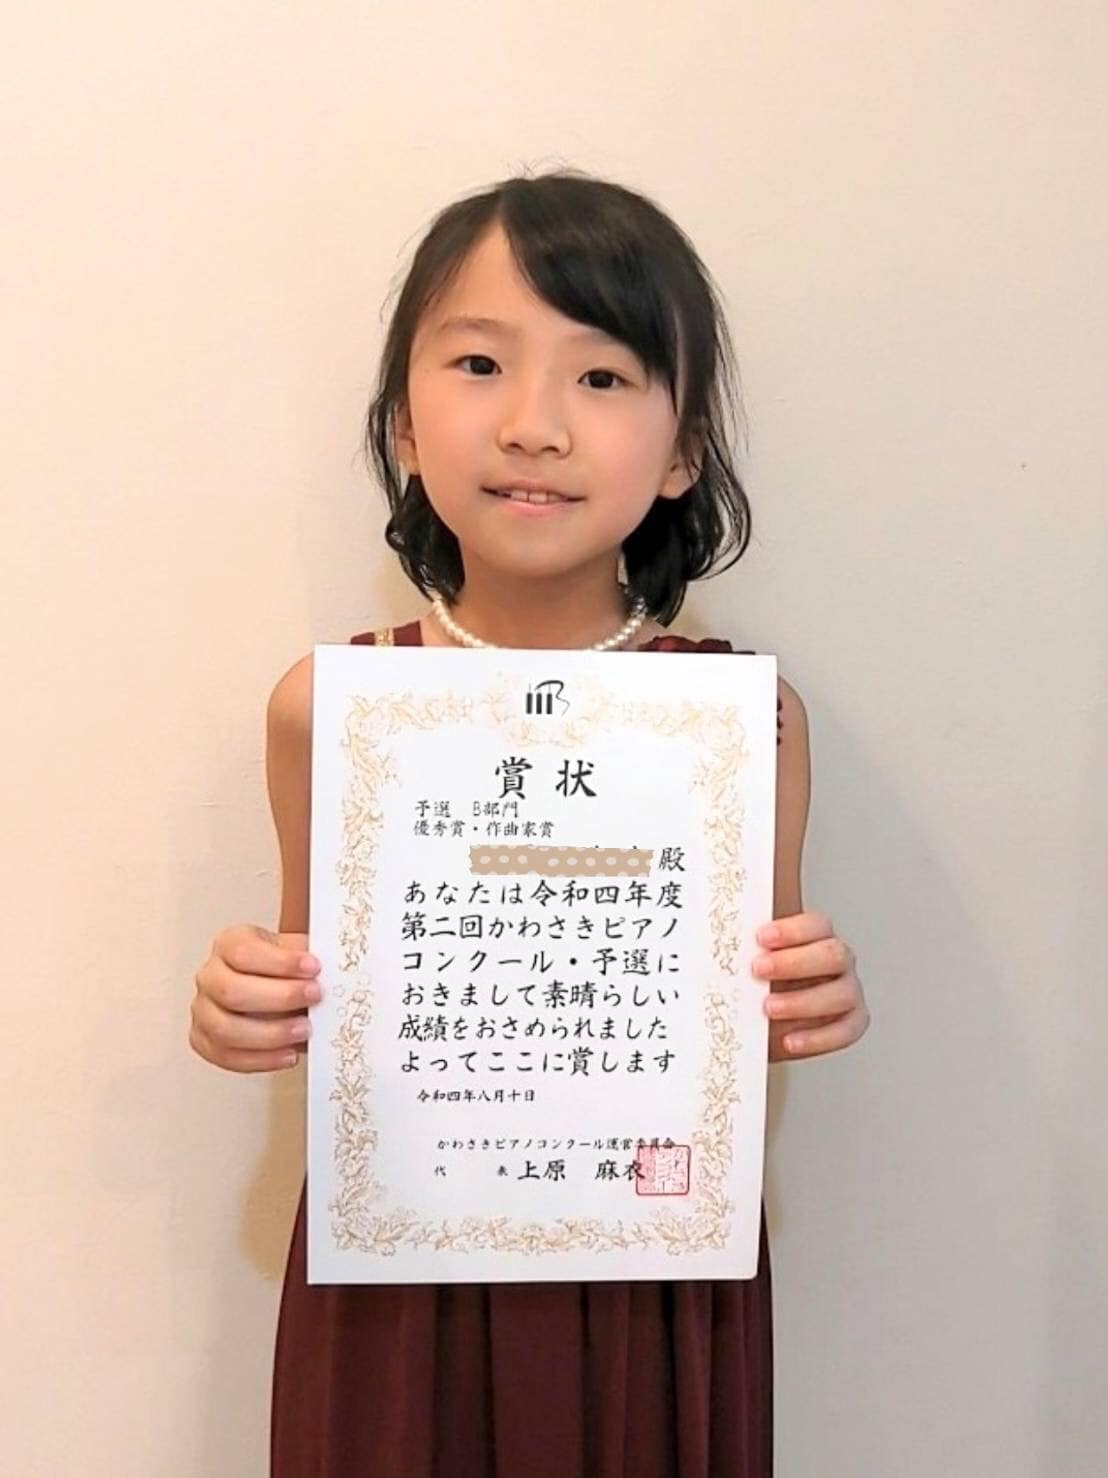 賞状
予選　B部門
優秀賞・作曲家賞
殿
あなたは令和四年度
第二回かわさきピアノ
コンクール・予選に
おきまして素晴らしい
成績をおさめられました
よってここに賞します
令和四年八月十日
かわさきピアノコンクール運営委員会
代　表 上原　麻衣